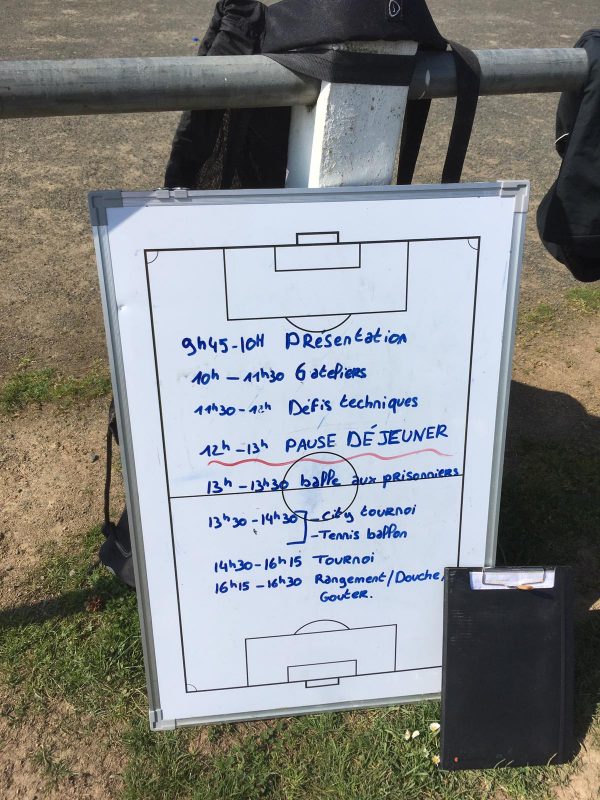 9h45-10H Présentation
10h - 11h30 6 ateliers
11h30 - 12h Défis techniques
12h - 13h PAUSE DÉJEUNER
13h - 13h30 balle aux prisonniers
13h30 - 14h30 - City tournoi
- Tennis ballon
14h30 - 16h15 Tournoi
16h15 - 16h30 Rangement/Douche/
Gouter.